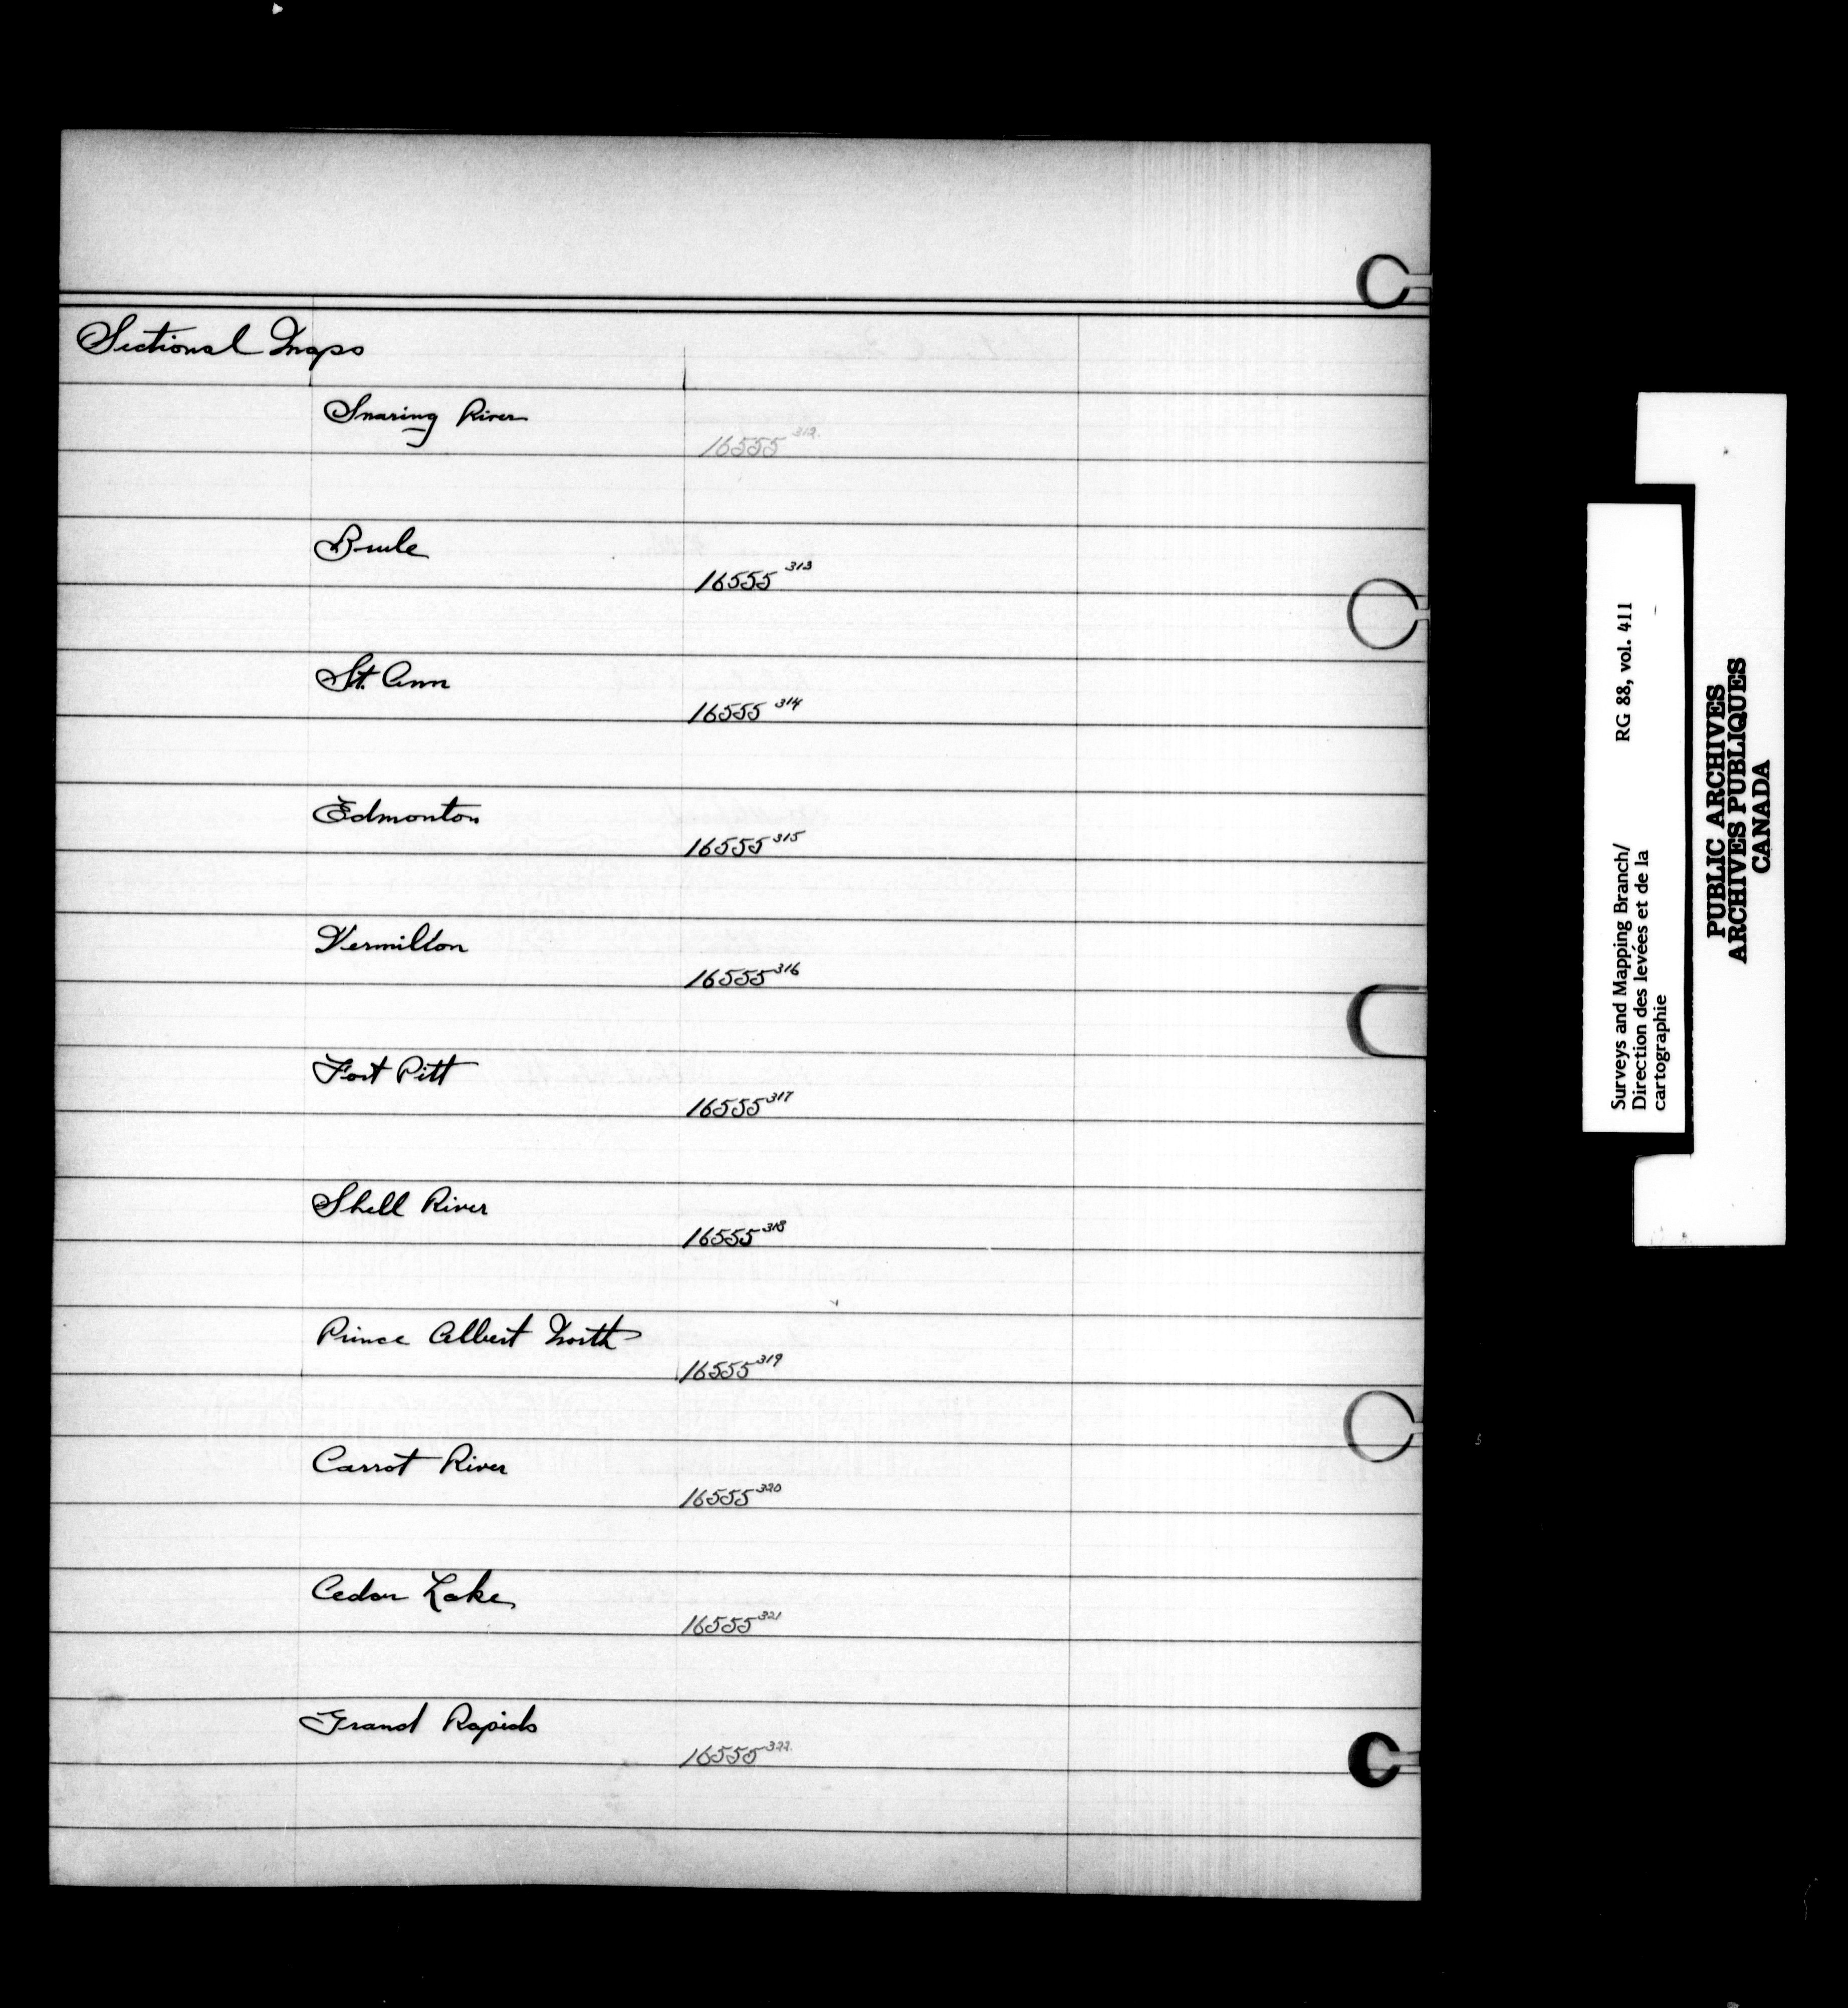 Sectional Maps
Snaring River
16555 312.
Brule
16555 313
St. Ann
16555 314
Edmonton
16555 315
Vermilion
16555 316
Fort Pitt
16555 317
Shell River
16555 318
Prince Albert North
16555 319
Carrot River
16555 320
Cedar Lake
16555 321
Grand Rapids
16555 322.
Surveys and Mapping Branch/ RG 88, vol. 411
Direction des levées et de la
cartographie
PUBLIC ARCHIVES
ARCHIVES PUBLIQUES
CANADA